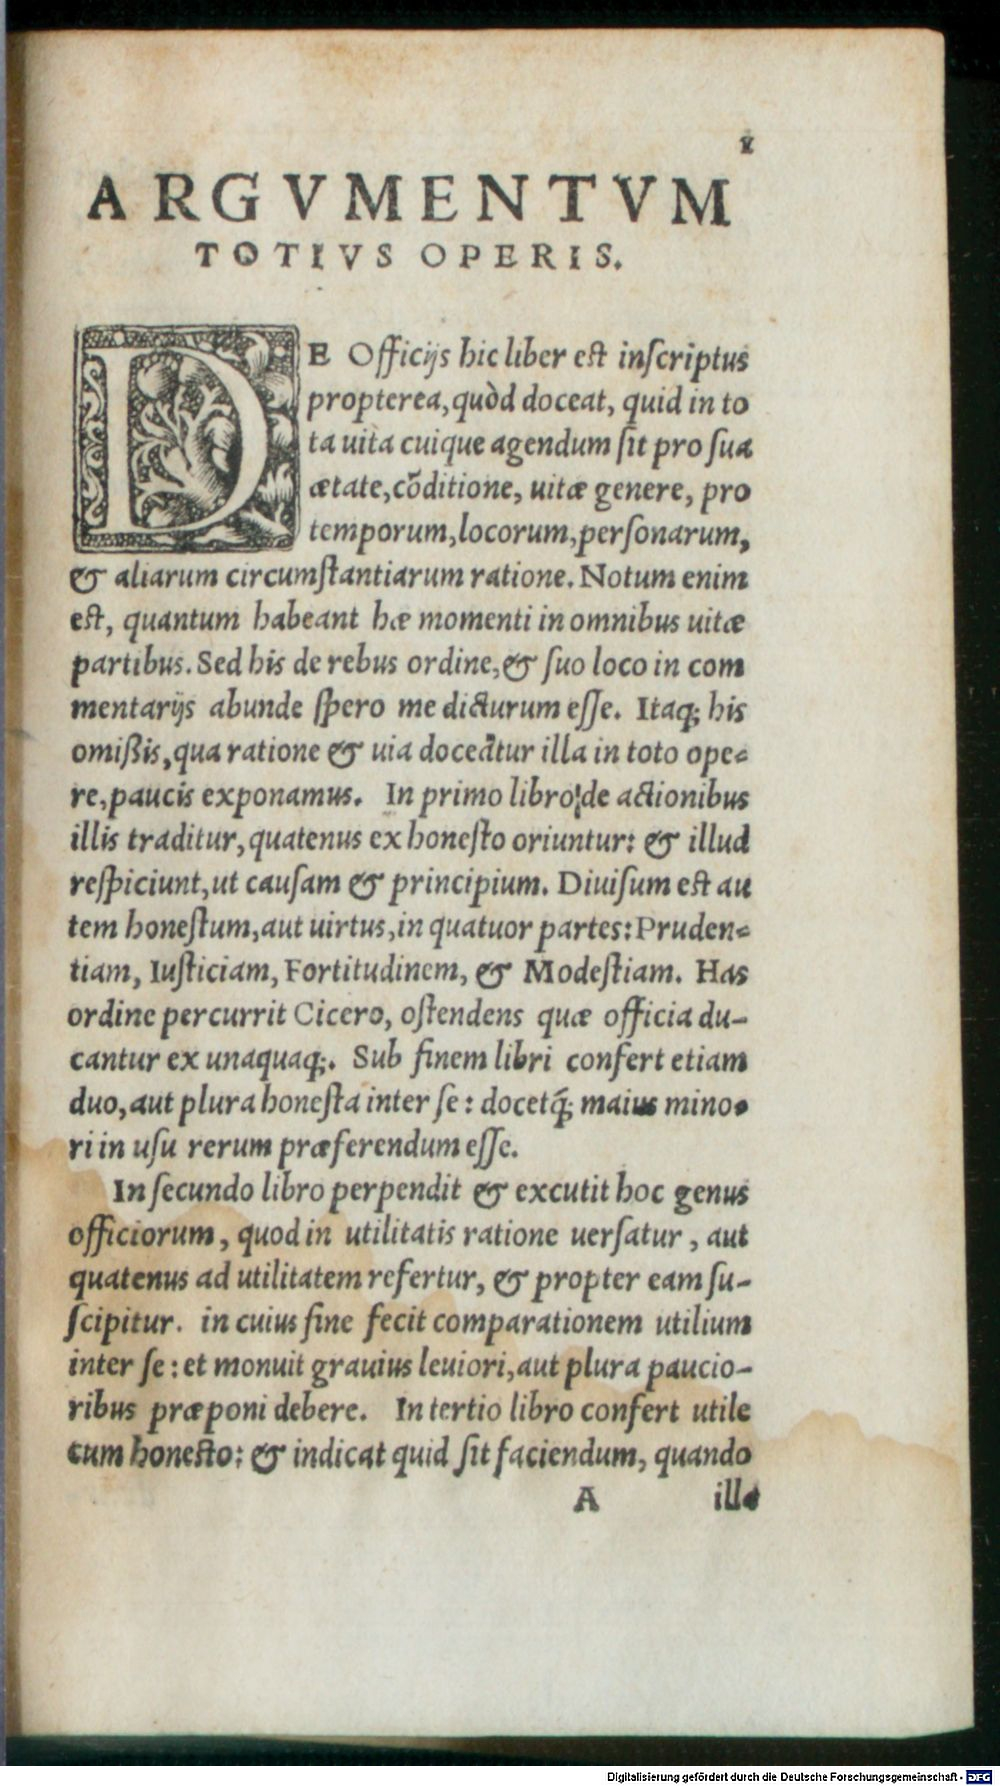 ARGVMENTVM
TOTIVS OPERIS.
DE Officijs hic liber est inscriptus
propterea, quòd doceat, quid in to
ta uita cuique agendum sit pro sua
ætate, cōditione, uitæ genere, pro
temporum, locorum, personarum,
& aliarum circumstantiarum ratione. Notum enim
est, quantum habeant hæ momenti in omnibus uitæ
partibus. Sed his de rebus ordine, & suo loco in com
mentarijs abunde spero me dicturum esse. Itaq; his
omißis, qua ratione & uia doceātur illa in toto ope-
re, paucis exponamus. In primo libro de actionibus
illis traditur, quatenus ex honesto oriuntur: & illud
respiciunt, ut causam & principium. Diuisum est au
tem honestum, aut uirtus, in quatuor partes: Pruden-
tiam, Iusticiam, Fortitudinem, & Modestiam. Has
ordine percurrit Cicero, ostendens quæ officia du-
cantur ex unaquaq;. Sub finem libri confert etiam
duo, aut plura honesta inter se: docetq́; maius mino-
ri in usu rerum præferendum esse.
In secundo libro perpendit & excutit hoc genus
officiorum, quod in utilitatis ratione uersatur, aut
quatenus ad utilitatem refertur, & propter eam su-
scipitur. in cuius fine fecit comparationem utilium
inter se: et monuit grauius leuiori, aut plura paucio-
ribus præponi debere. In tertio libro confert utile
cum honesto: & indicat quid sit faciendum, quando
A illa
Digitalisierung gefördert durch die Deutsche Forschungsgemeinschaft - DFG